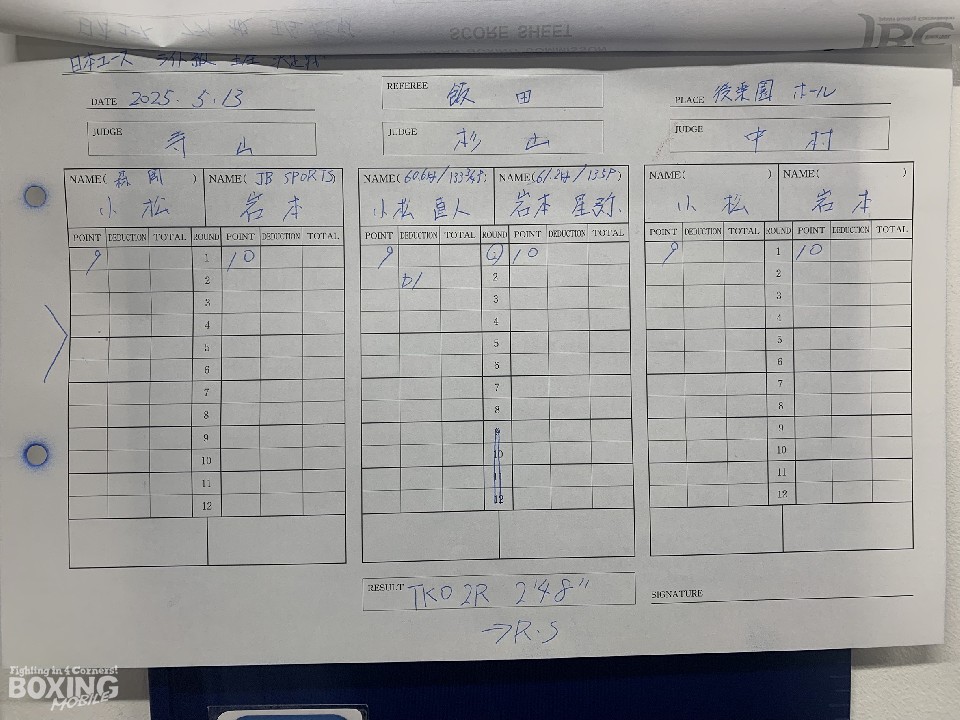 SCORE SHEET
JBC
日本ユース ライト級 王座 決定戦
DATE 2025.5.13
REFEREE 飯田
PLACE 後楽園 ホール
JUDGE 寺山
JUDGE 杉山
JUDGE 中村
NAME( 森岡 ) NAME( JB SPORTS)
小松 岩本
NAME( ) NAME( )
小松 直人 岩本 星弥
小松 岩本
POINT DEDUCTION TOTAL ROUND POINT DEDUCTION TOTAL
POINT DEDUCTION TOTAL ROUND POINT DEDUCTION TOTAL
POINT DEDUCTION TOTAL ROUND POINT DEDUCTION TOTAL
9 1 10
9 1 10
9 1 10
2 D/ 2 2
3 3 3
4 4 4
5 5 5
6 6 6
7 7 7
8 8 8
9 9 9
10 10 10
11 11 11
12 12 12
RESULT TKO 2R 2'48"
→R.S
SIGNATURE
Fighting in 4 Corners!
BOXING
MOBILE